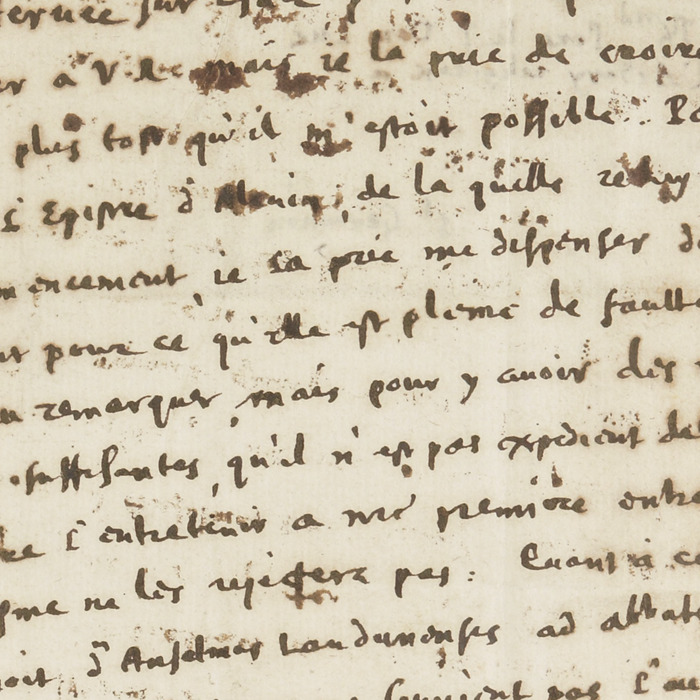 er a V.R. mais ie la prie de croire
plus tost qu'il m'estoit possible. Po
L'Epistre d'Alcuin, de la quelle
mencement ie la prie me dispenser de
pour ce qu'elle est pleine de fault
remarquer, mais pour y avoir des
suffisantes, qu'il n'est pas expedient de
l'entretenir a nre premiere entre
me ne les rejettera pas: Quant a ce
oit d'Anselmus Laudunensis ad abbat
pas l'au